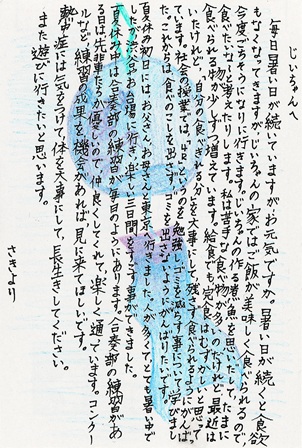 じいちゃんへ
毎日暑い日が続いていますがお元気ですか。暑い日が続くと食欲
もなくなってきますがじいちゃんの家ではご飯が美味しく食べられるので、
今度ごちそうになりに行きます。じいちゃんの作る煮魚を思いだして、たまに
食べたいなと考えたりします。私は苦手な食べ物が多いのだけれど最近は
食べられる物が少しずつ増えています。給食でも完食はむずかしいと思って
いたけれど、自分の食べきれる分を大事に残さず食べられるようにがんばっ
ています。社会の授業では、「4R」というものを勉強しゴミを減らす事について学びまし
た。これからは、食べずにゴミを出さないようにがんばります。
夏休の初日には、お父さん、お母さんと東京へ行きました。人が多くてとても暑い中で
したが渋谷やお台場に行き、楽しい三日間をすごす事ができました。
夏休み中は合奏部の練習が毎日のようにあります。合奏部の練習があ
る日は先輩たちが優しいので仲良くしてくれて、楽しく通っています。コンクー
ルなど練習の成果を機会があれば見に来てほしいです。
熱中症には気をつけて体を大事にして、長生きしてください。
また遊びに行きたいと思います。
さきより